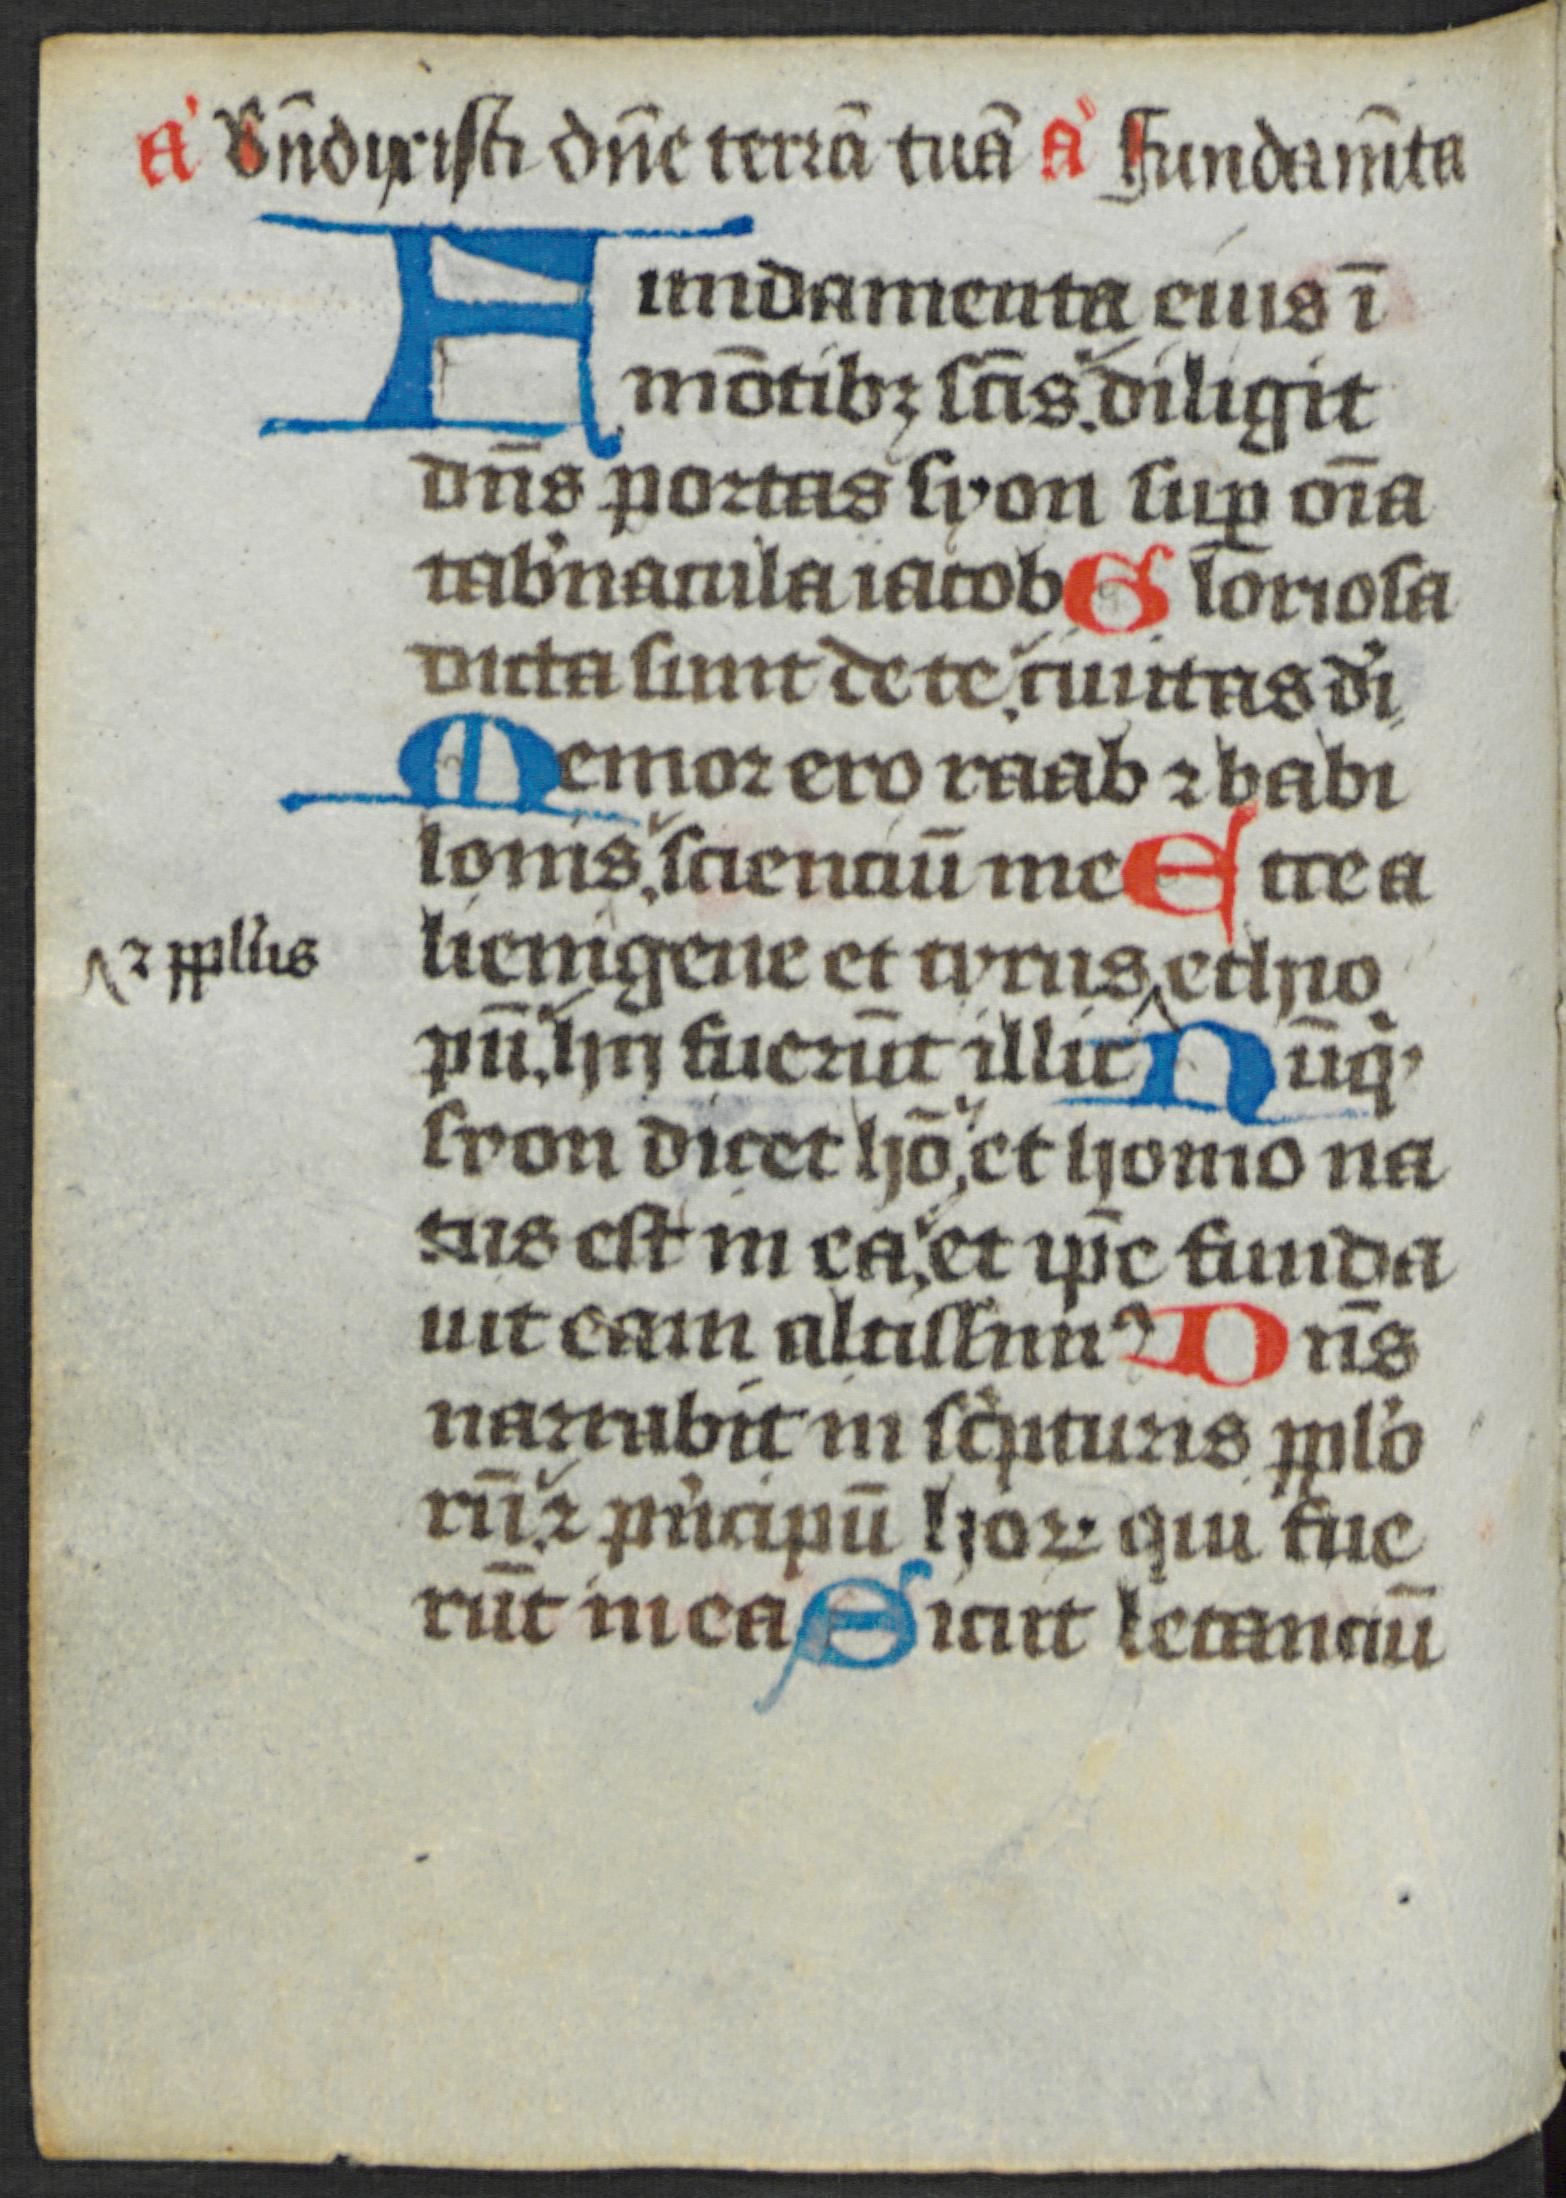 a' Bn̄dixisti dn̄e terrā tuā a' Fundam̄ta
Fundamenta eius ī
mōtibꝫ sc̄is. diligit
dn̄s portas syon suꝑ om̄ia
tab'nacula iacob Gloriosa
dicta sunt de te. ciuitas d'i
Memor ero raab ⁊ babi
lonis. scienciū me Ecce a
lienigene et tyrus ethyo
⁊ ppl'us
pū. hij fuerūt illic Nūq'
syon dicet hō. et homo na
tus est in ea. et ip̄e funda
uit eam altissimꝰ Dn̄s
narrabit in scͥpturis ppl'o
rū. ⁊ pͥncipū hoꝝ qui fue
rūt in ea Sicut letanciū